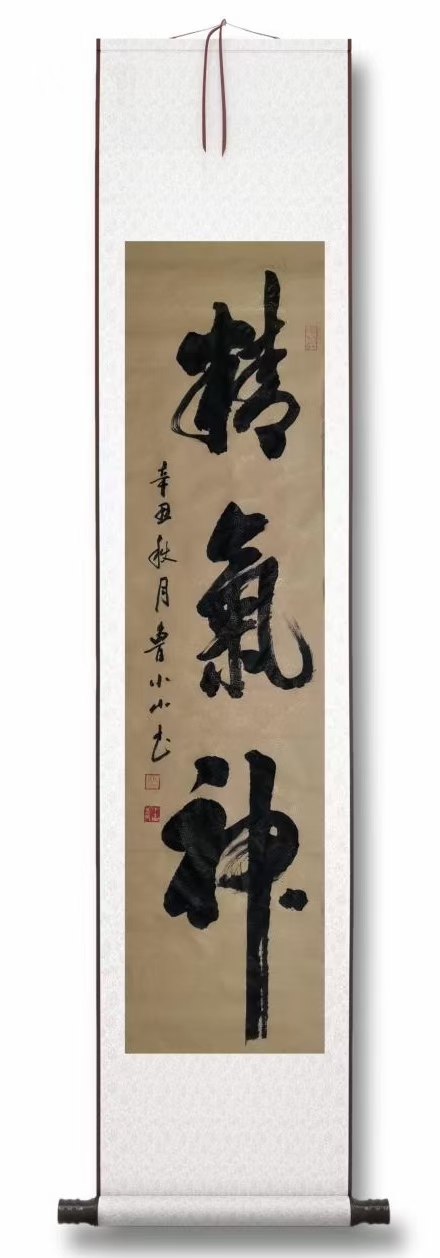 精氣神
辛丑秋月魯小山书